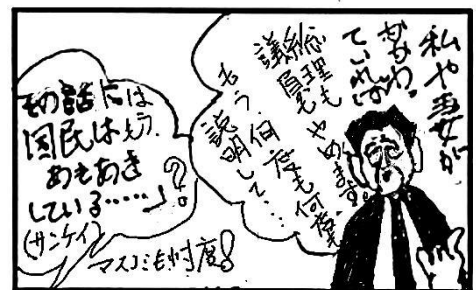 私や妻が
かかわっ
ていれば
総理も
議員も
やめます。
もう、何度も何度も
説明して…
その話には
国民はもう、
あきあき
している……」?
(サンケイ)
マスコミも忖度!